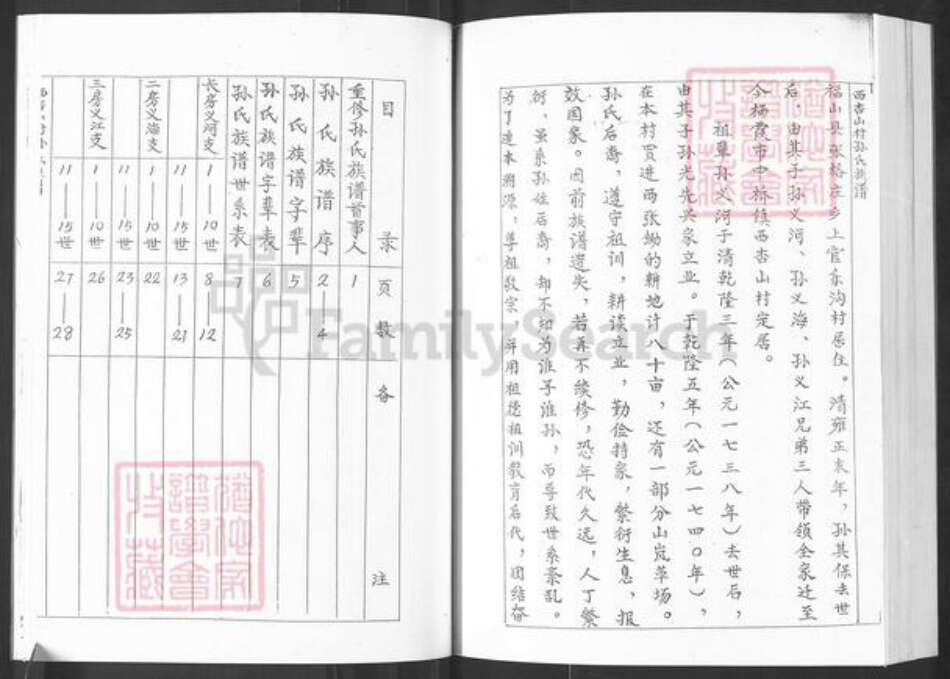 西杏山村孙氏族谱
福山县张格庄乡上官东沟村居住。清雍正末年，孙其保去世
后，由其子孙义河、孙义海、孙义江兄弟三人带领全家迁至
今栖霞市中桥镇西杏山村定居。
祖辈孙义河于清乾隆三年（公元一七三八年）去世后，
由其子孙光先兴家立业。于乾隆五年（公元一七四〇年），
在本村买进西张坳的耕地计八十亩，还有一部分山岚草场。
孙氏后裔，遵守祖训，耕读立业，勤俭持家，繁衍生息，报
效国家。因前族谱遗失，若再不续修，恐年代久远，人丁繁
虽系孙姓后裔，却不知为谁子谁孙，而导致世系紊乱。
为了追本溯源，尊祖敬宗 并用祖德祖训教育后代，团结奋
目 录 页 数 备 注
重修孙氏族谱首事人 1
孙氏族谱序 2——4
孙氏族谱字辈 5
孙氏族谱字辈表 6
孙氏族谱世系表 7
长房义河支 1——10世 8——12
11——15世 13——21
二房义海支 1——10世 22
11——15世 23——25
三房义江支 1——10世 26
11——15世 27——28
FamilySearch